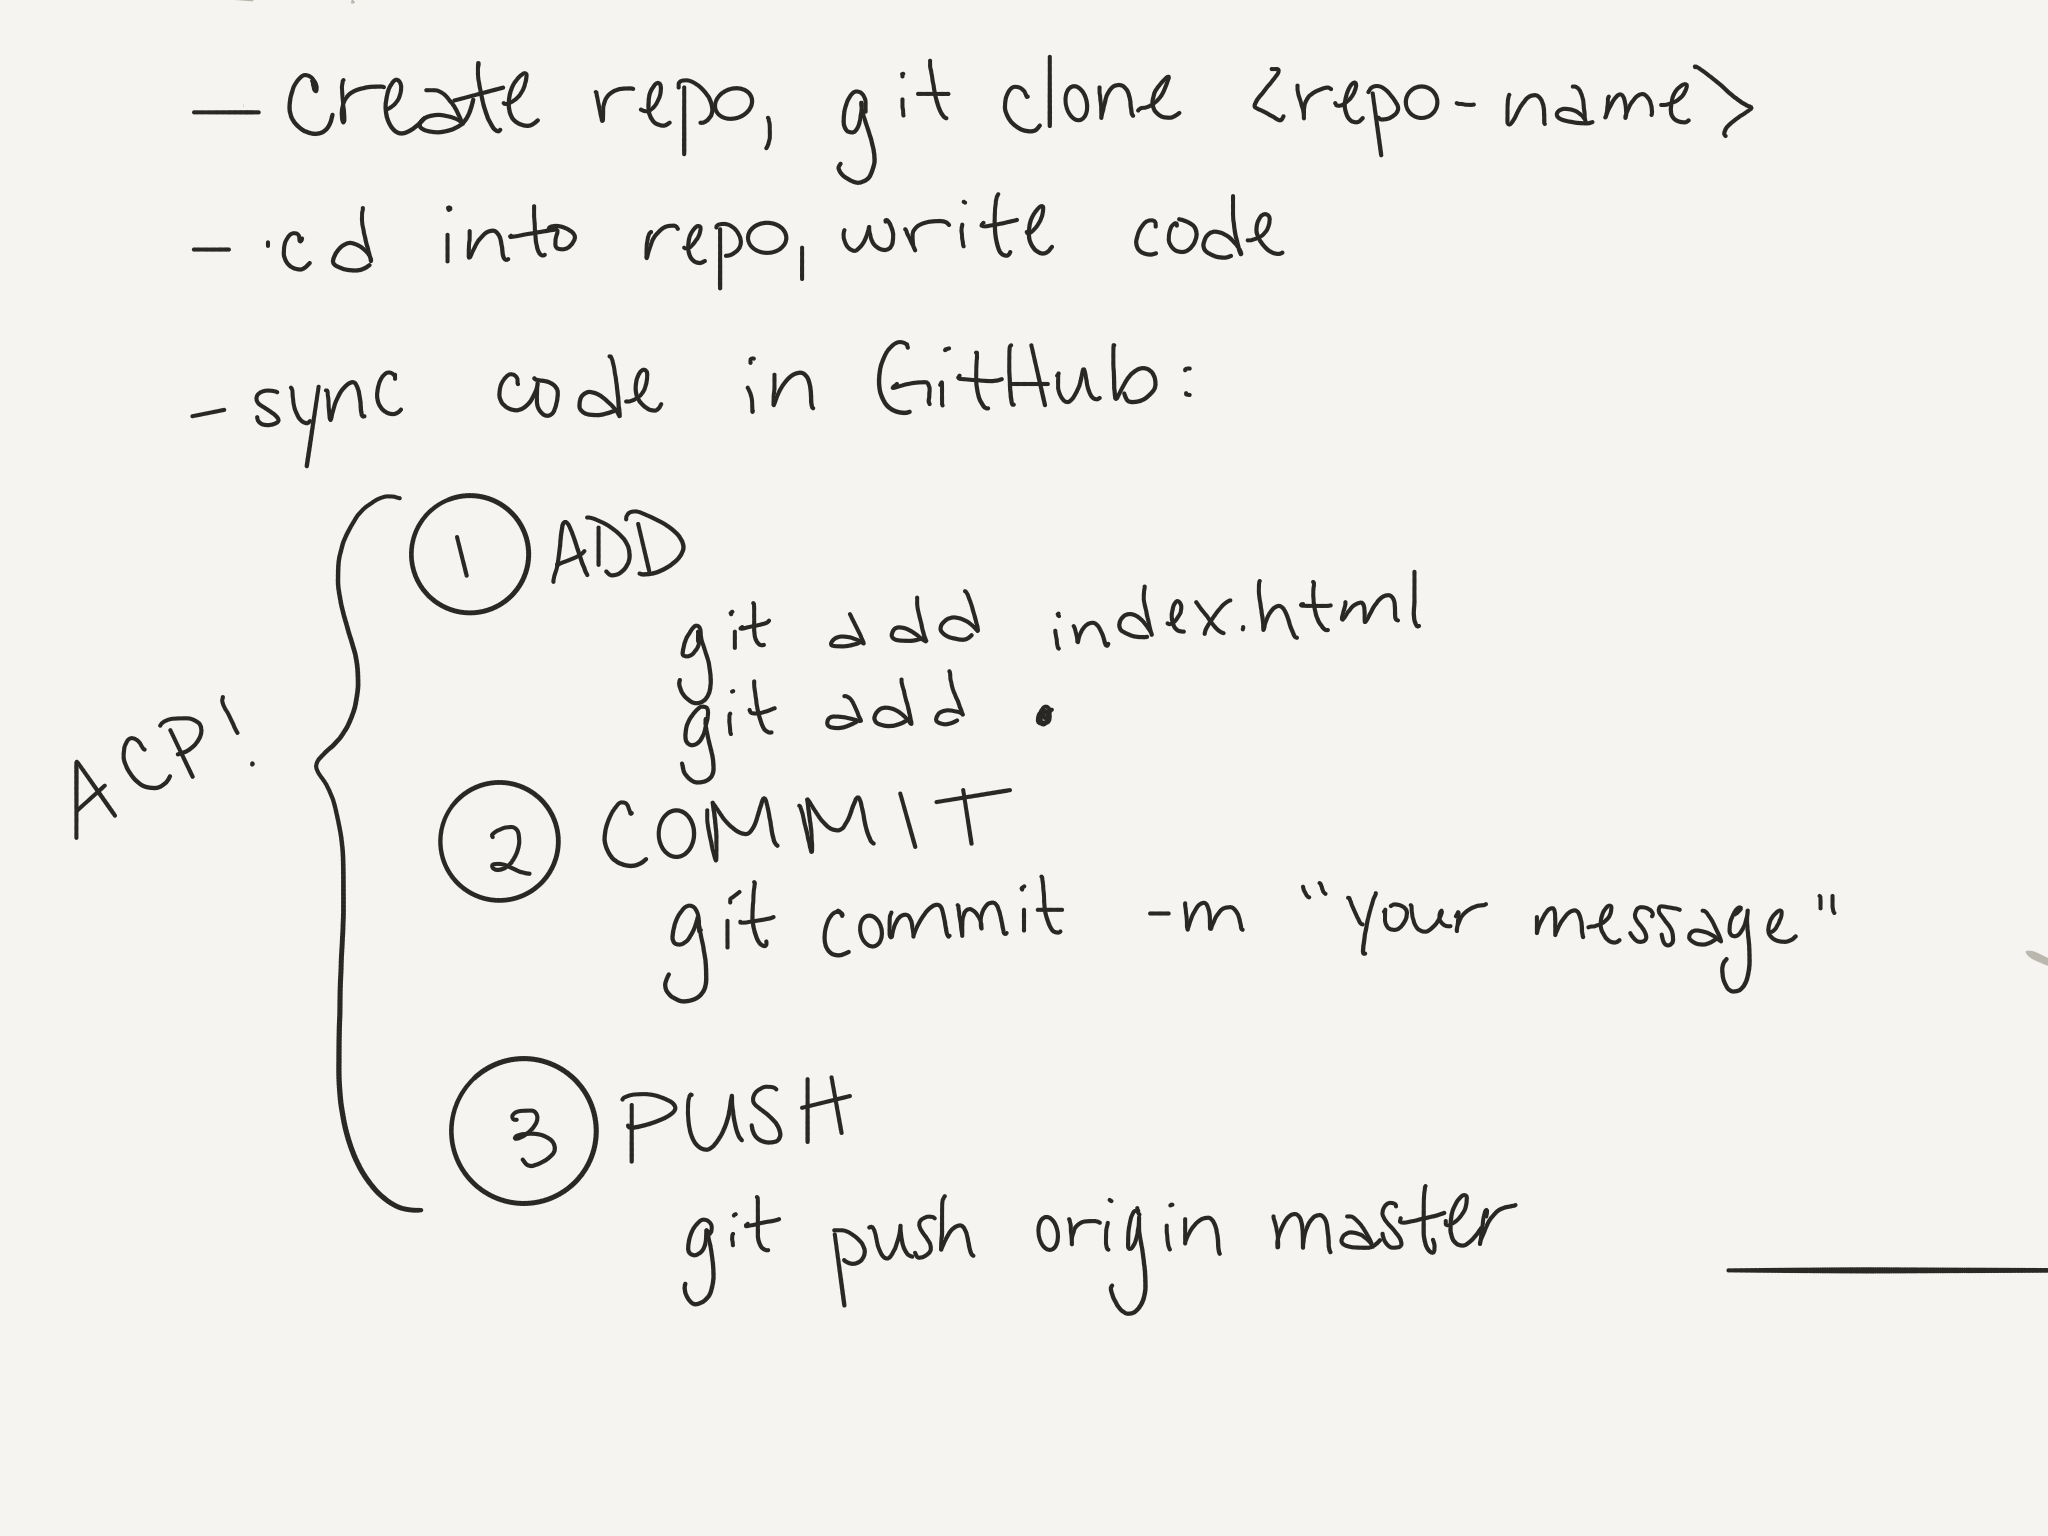 - Create repo, git clone <repo-name>
- cd into repo, write code
- sync code in GitHub:
ACP!
1 ADD
git add index.html
git add .
2 COMMIT
git commit -m "your message"
3 PUSH
git push origin master